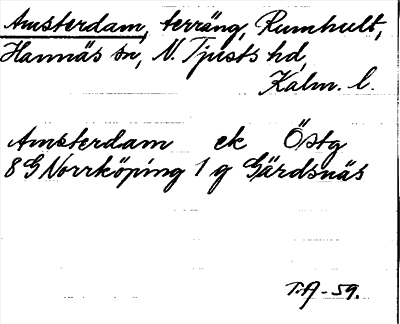 Amsterdam, terräng, Rumhult,
Hannäs sn, N. Tjusts hd,
Kalm. l.
Amsterdam ek Östg
8 G Norrköping 1 g Gärdsnäs
T.A-59.